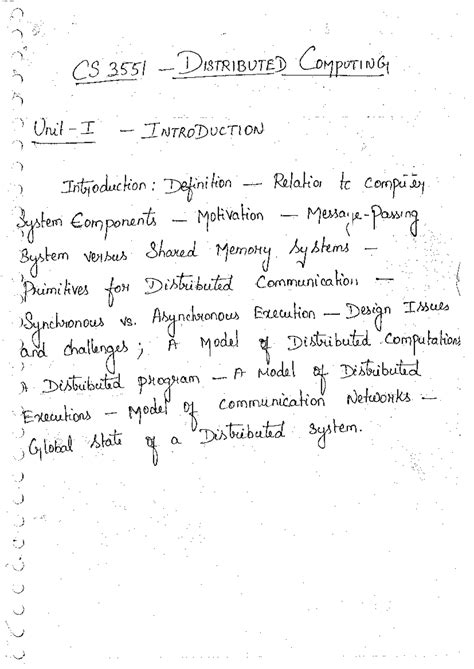 CS 3551 – DISTRIBUTED COMPUTING
Unit – I – INTRODUCTION
Introduction : Definition – Relation to Computer
System Components – Motivation – Message-Passing
System versus Shared Memory Systems –
Primitives for Distributed Communication –
Synchronous vs. Asynchronous Execution – Design Issues
and challenges ; A Model of Distributed Computations
A Distributed program – A Model of Distributed
Executions – Model of Communication Networks –
Global State of a Distributed System.